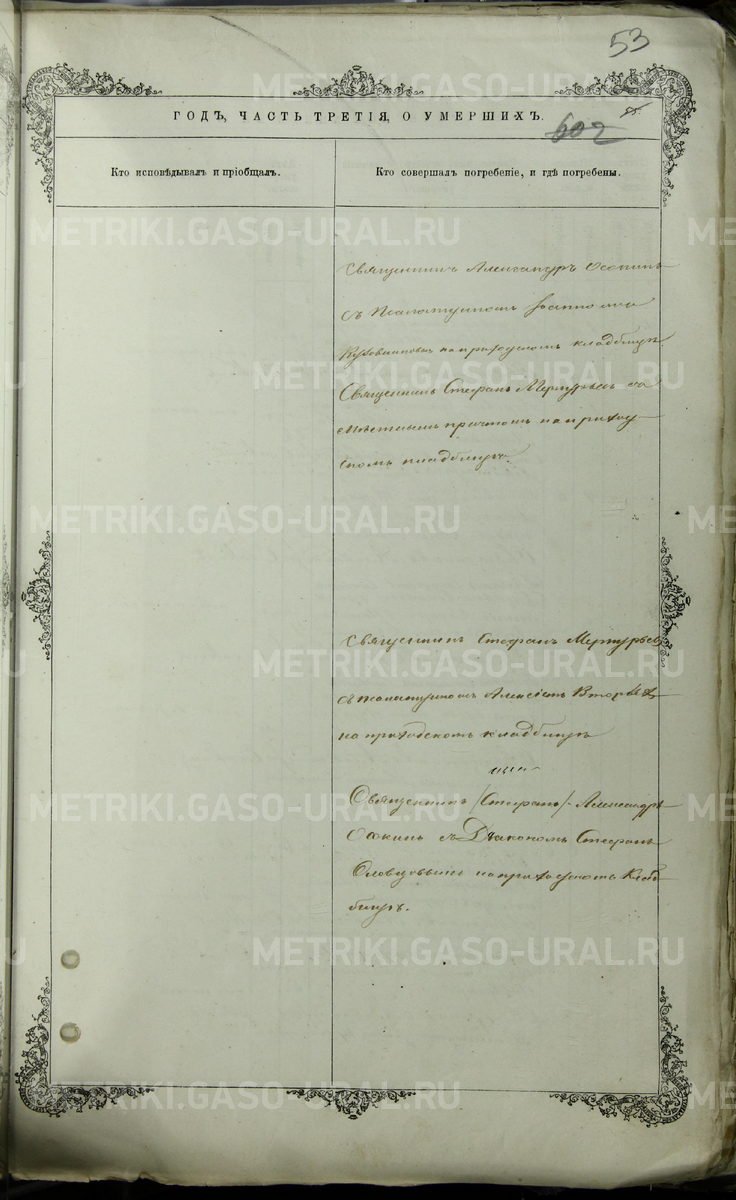 53
ГОДЪ, ЧАСТЬ ТРЕТІЯ, О УМЕРШИХЪ.
602
Кто исповѣдывалъ и пріобщалъ.
Кто совершалъ погребеніе, и гдѣ погребены.
Священникъ Александръ Осокинъ
съ
на приходскомъ кладбищѣ.
Священникъ Стефанъ Меркурьевъ со
причтомъ на приход
скомъ кладбищѣ.
Священникъ Стефанъ Меркурьевъ
съ Алексіемъ
на приходскомъ кладбищѣ
Священникъ /Стефанъ/ Александръ
Осокинъ съ Діакономъ Стефан
Словцовымъ на приходскомъ клад
бищѣ.
METRIKI.GASO-URAL.RU